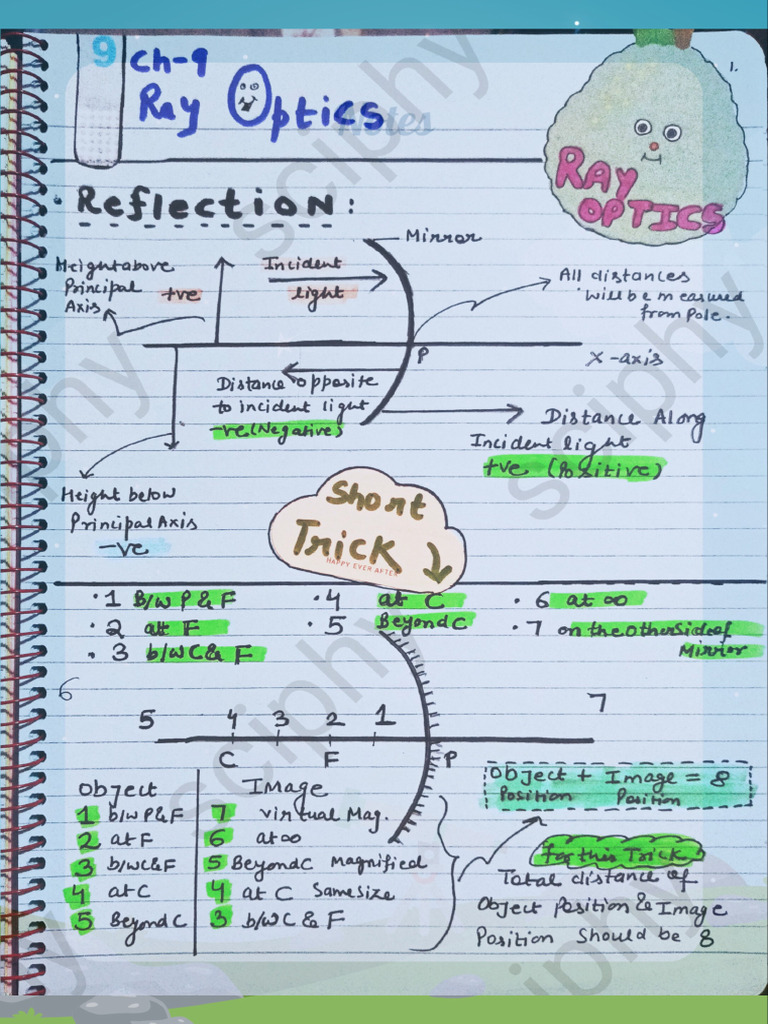 9 Ch-9
Ray Optics
Notes
1.
RAY
OPTICS
sciphy
• Reflection:
Mirror
Height above
Principal
Axis
+ve
Incident
light
All distances
will be measured
from Pole.
P
X-axis
Distance opposite
to incident light
-ve (Negative)
Distance Along
Incident light
+ve (Positive)
Height below
Principal Axis
-ve
Short
Trick
HAPPY EVER AFTER
• 1 B/W P & F
• 2 at F
• 3 b/w C & F
• 4 at C
• 5 Beyond C
• 6 at ∞
• 7 on the other side of
Mirror
6
7
5 4 3 2 1
C F P
Object Image
1 b/w P & F 7 virtual Mag.
2 at F 6 at ∞
3 b/w C & F 5 Beyond C Magnified
4 at C 4 at C Same size
5 Beyond C 3 b/w C & F
Object + Image = 8
Position Position
for this Trick
Total distance of
Object position & Image
Position Should be 8